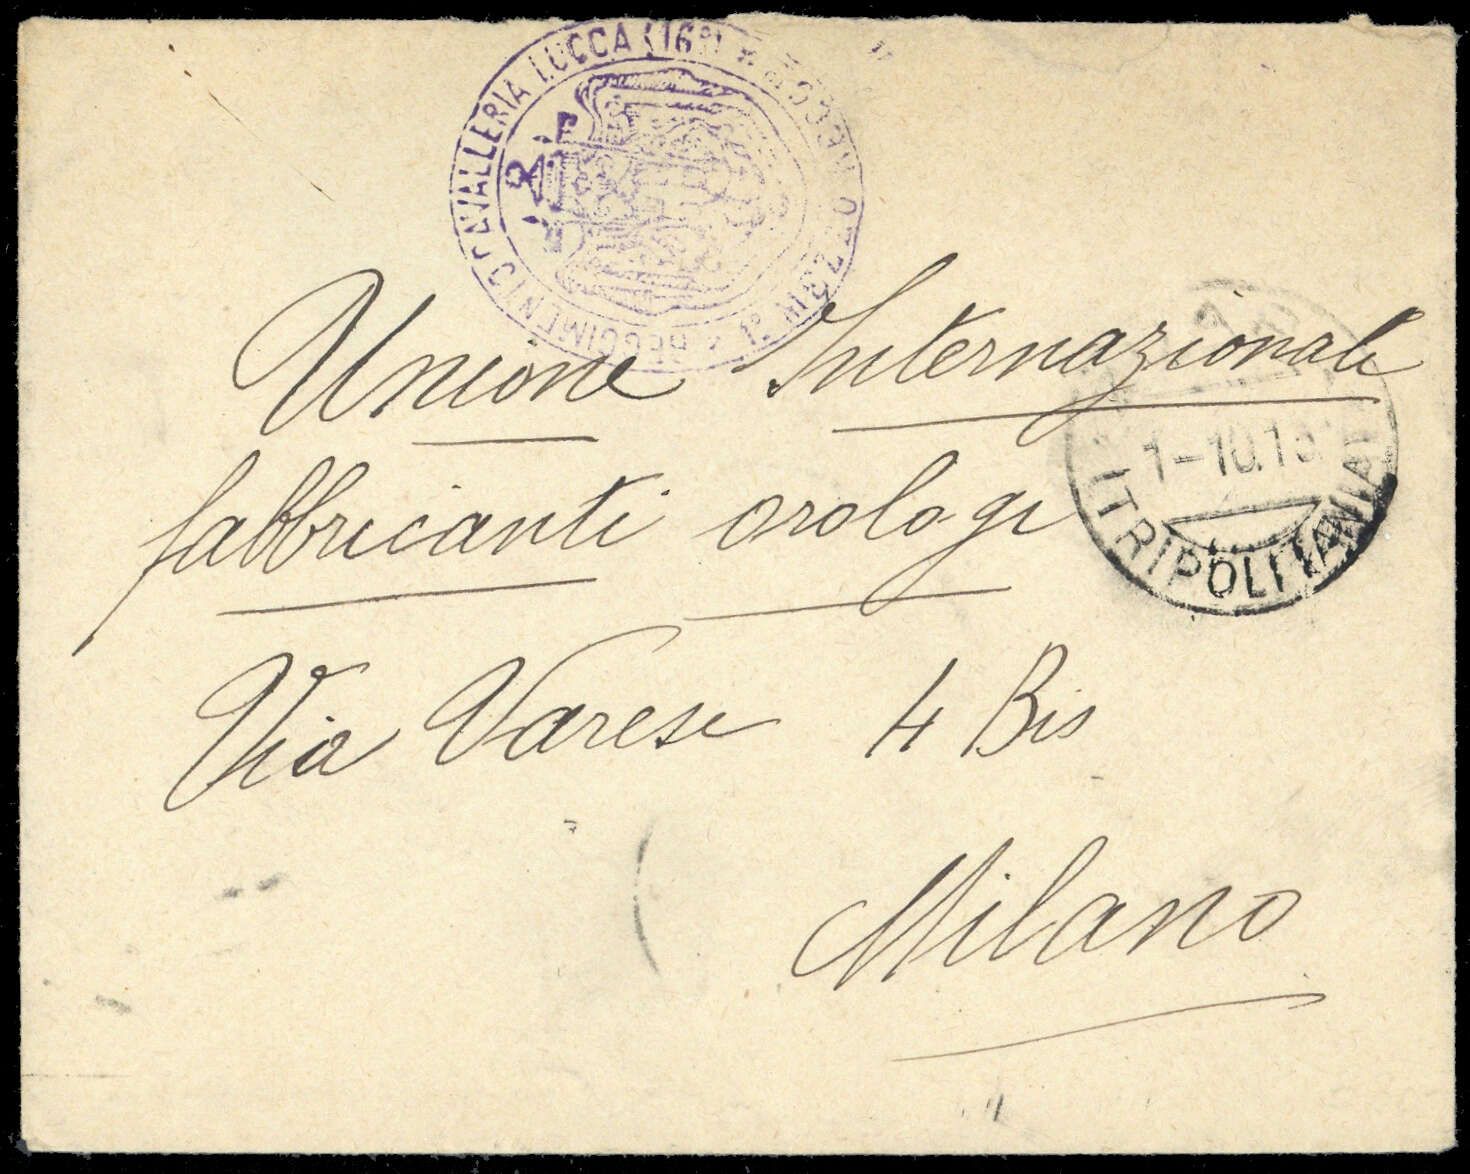 REGGIMENTO CAVALLERIA LUCCA (16º)
Unione Internazionale
fabbricanti orologi
Via Varese 4 Bis
Milano
1-10.13
(TRIPOLITANIA)